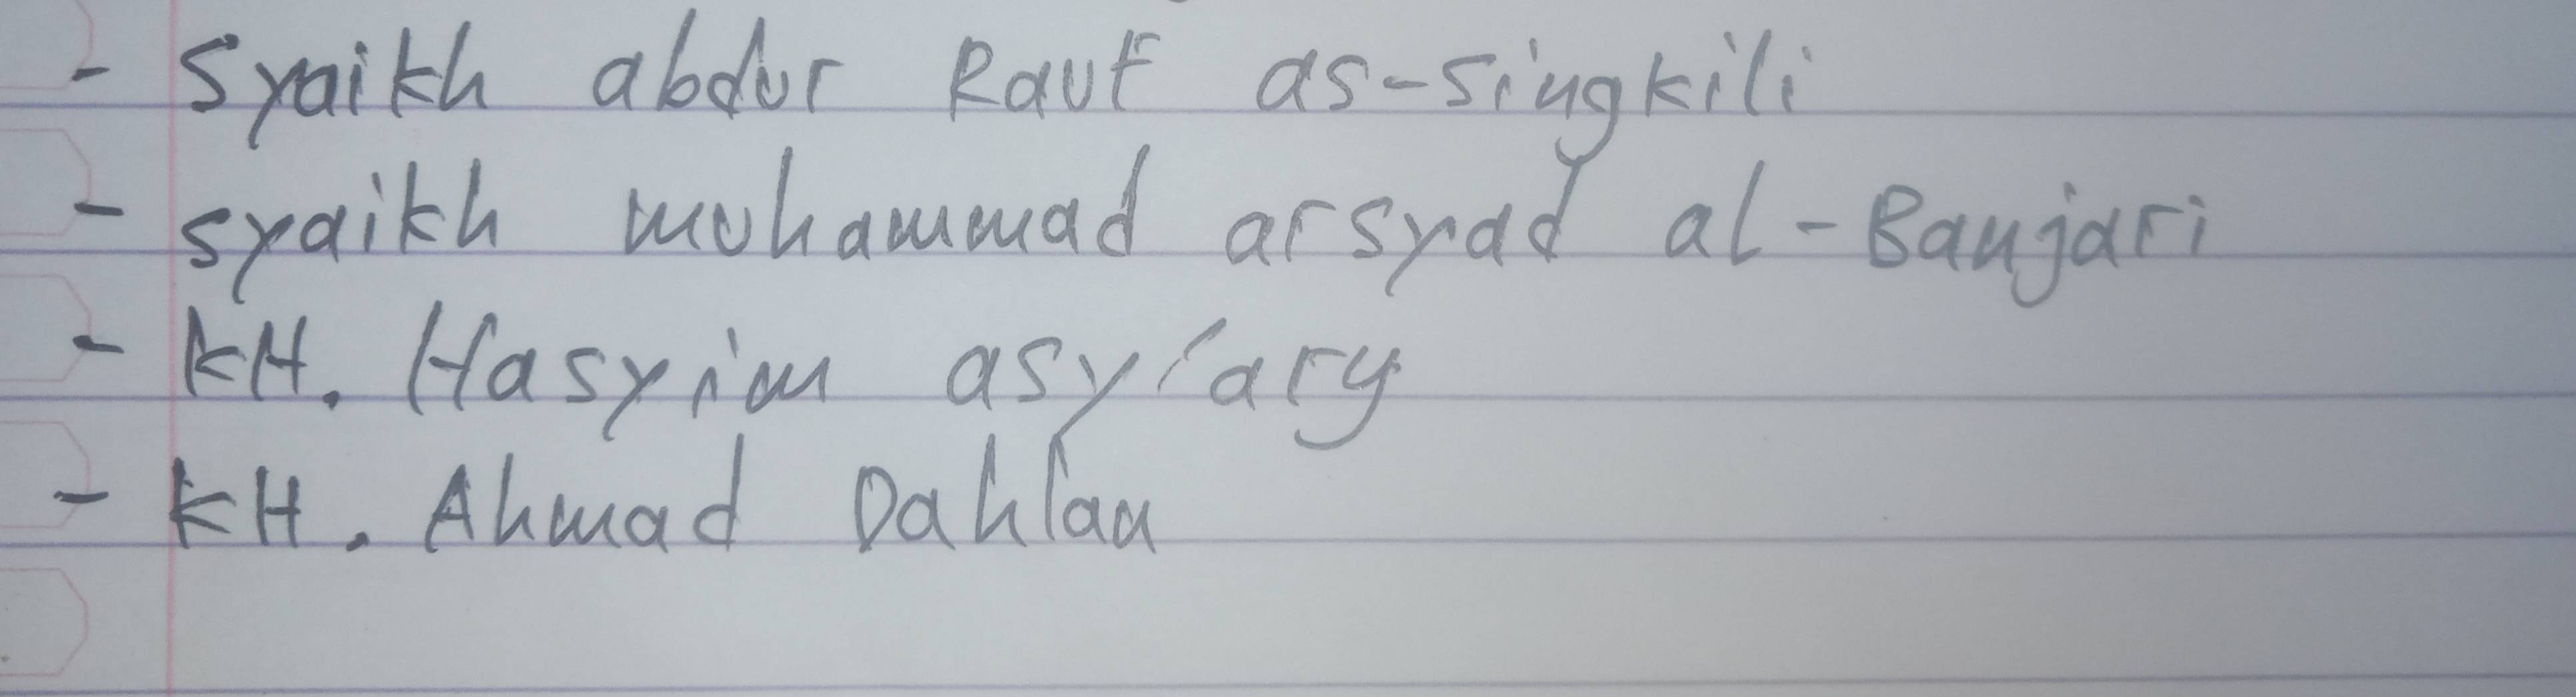 - Syaikh abdur Rauf as-singkili
- syaikh muhammad arsyad al-Banjari
- KH. Hasyim asy'ary
- KH. Ahmad Dahlan